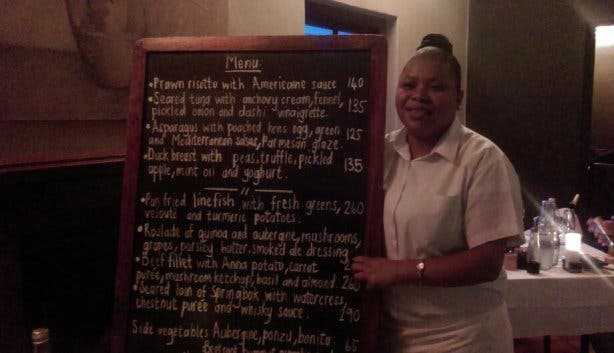 Menu
• Prawn risotto with Americaine sauce 140
• Seared tuna with anchovy cream, fennel, 135
pickled onion and dashi vinaigrette.
• Asparagus with poached hens egg, green 125
and Mediterranean salsas, Parmesan glaze.
• Duck breast with peas, truffle, pickled 135
apple, mint oil and yoghurt.
• Pan fried linefish with fresh greens, 260
velouté and turmeric potatoes.
• Roulade of quinoa and aubergine, mushrooms,
grapes, parsley butter, smoked ale dressing
• Beef fillet with Anna potato, carrot
purée, mushroom ketchup, basil and almond. 260
• Seared loin of Springbok with watercress,
chestnut purée and whisky sauce. 290
Side vegetables Aubergine, ponzu, bonito 65